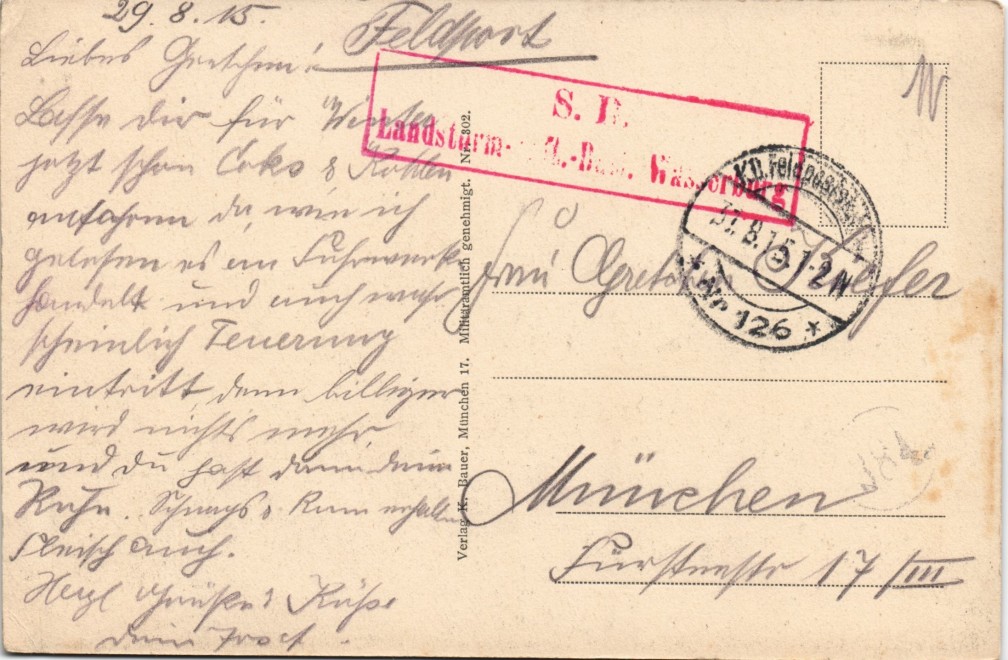 29.8.15.
Feldpost
Liebes Gretchen!
Lasse dir für Winter
jetzt schon Coks & Kohlen
anfahren da, wie ich
gelesen es an Fuhrwerk
handelt und auch wahr
scheinlich Teuerung
eintritt, denn billiger
wird nichts mehr,
und du hast dann deine
Ruhe. Schnaps & Rum erhalten
Fleisch auch.
Herzl Grüße & Küße
dein
S. B.
Landsturm- Wasserburg
K.D. Feldpost
31.8.15 1-2 N
* Nr 126 *
N
Frau Gretchen
München
Fürstenstr 17/III
Verlag K. Bauer, München 17. Militäramtlich genehmigt. Nr. 302.